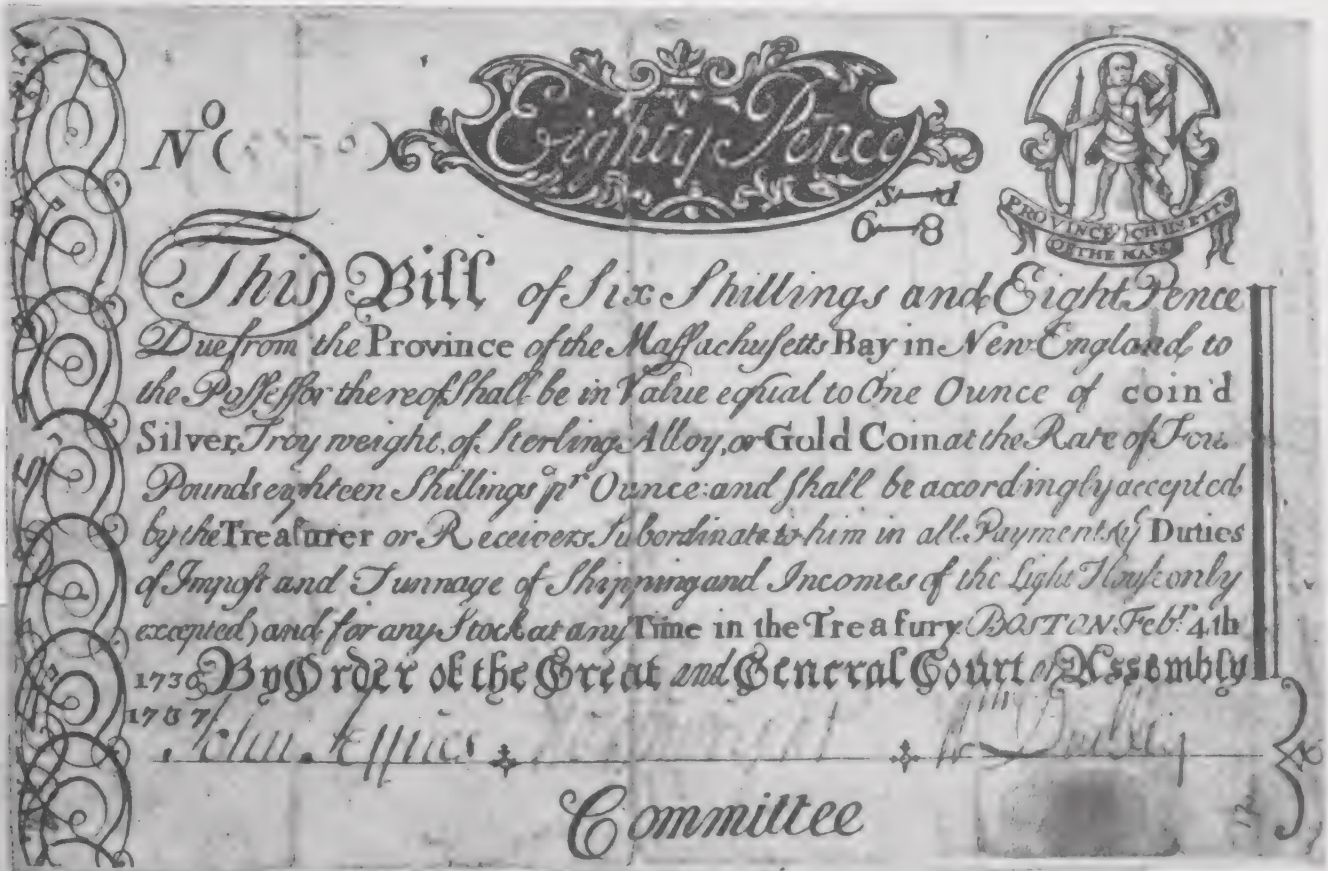 Nº (
Eighty Pence
s—d
6—8
PROVINCE
OF THE MASS
CHUSETTS
This Bill of Six Shillings and Eight Pence
Due from the Province of the Maſſachuſetts Bay in New England, to
the Poſſeſſor thereof ſhall be in Value equal to One Ounce of coin'd
Silver, Troy weight, of Sterling Alloy, or Gold Coin at the Rate of Four
Pounds eighteen Shillings pr Ounce: and ſhall be accordingly accepted
by the Treaſurer or Receivers Subordinate to him in all Payments (ye Duties
of Impoſt and Tunnage of Shipping and Incomes of the Light Houſe only
excepted) and for any Stock at any Time in the Treaſury. BOSTON, Febr. 4th
1736
By Order of the Great and General Court or Aſſembly
1737
John Jeffries Wm Dudley
Committee